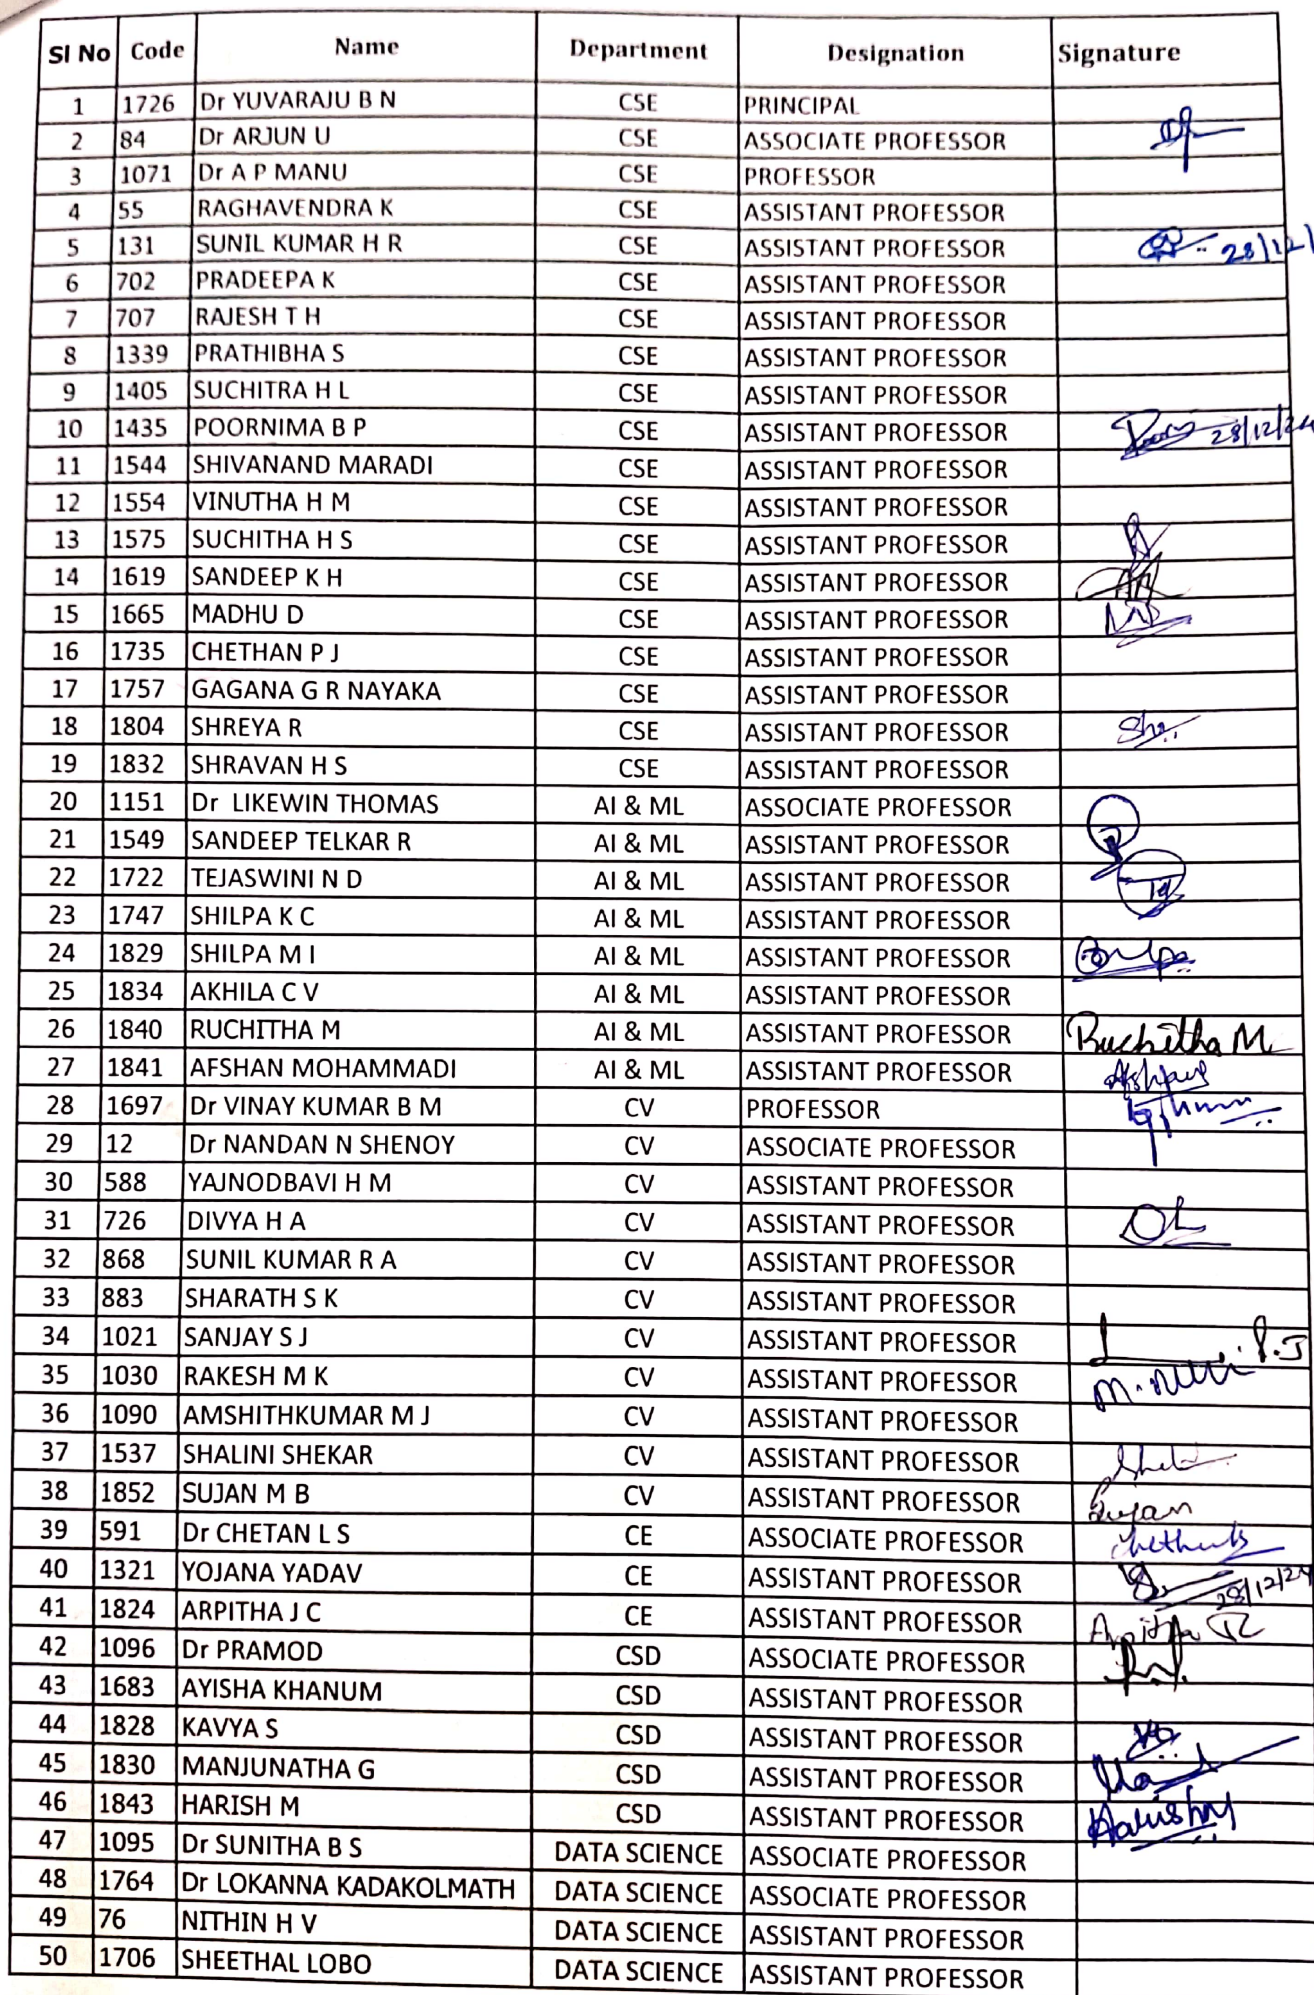 Sl No Code Name Department Designation Signature
1 1726 Dr YUVARAJU B N CSE PRINCIPAL
2 84 Dr ARJUN U CSE ASSOCIATE PROFESSOR
3 1071 Dr A P MANU CSE PROFESSOR
4 55 RAGHAVENDRA K CSE ASSISTANT PROFESSOR
5 131 SUNIL KUMAR H R CSE ASSISTANT PROFESSOR 28/12/
6 702 PRADEEPA K CSE ASSISTANT PROFESSOR
7 707 RAJESH T H CSE ASSISTANT PROFESSOR
8 1339 PRATHIBHA S CSE ASSISTANT PROFESSOR
9 1405 SUCHITRA H L CSE ASSISTANT PROFESSOR
10 1435 POORNIMA B P CSE ASSISTANT PROFESSOR 28/12/24
11 1544 SHIVANAND MARADI CSE ASSISTANT PROFESSOR
12 1554 VINUTHA H M CSE ASSISTANT PROFESSOR
13 1575 SUCHITHA H S CSE ASSISTANT PROFESSOR
14 1619 SANDEEP K H CSE ASSISTANT PROFESSOR
15 1665 MADHU D CSE ASSISTANT PROFESSOR
16 1735 CHETHAN P J CSE ASSISTANT PROFESSOR
17 1757 GAGANA G R NAYAKA CSE ASSISTANT PROFESSOR
18 1804 SHREYA R CSE ASSISTANT PROFESSOR
19 1832 SHRAVAN H S CSE ASSISTANT PROFESSOR
20 1151 Dr LIKEWIN THOMAS AI & ML ASSOCIATE PROFESSOR
21 1549 SANDEEP TELKAR R AI & ML ASSISTANT PROFESSOR
22 1722 TEJASWINI N D AI & ML ASSISTANT PROFESSOR
23 1747 SHILPA K C AI & ML ASSISTANT PROFESSOR
24 1829 SHILPA M I AI & ML ASSISTANT PROFESSOR
25 1834 AKHILA C V AI & ML ASSISTANT PROFESSOR
26 1840 RUCHITHA M AI & ML ASSISTANT PROFESSOR Ruchitha M
27 1841 AFSHAN MOHAMMADI AI & ML ASSISTANT PROFESSOR
28 1697 Dr VINAY KUMAR B M CV PROFESSOR
29 12 Dr NANDAN N SHENOY CV ASSOCIATE PROFESSOR
30 588 YAJNODBAVI H M CV ASSISTANT PROFESSOR
31 726 DIVYA H A CV ASSISTANT PROFESSOR
32 868 SUNIL KUMAR R A CV ASSISTANT PROFESSOR
33 883 SHARATH S K CV ASSISTANT PROFESSOR
34 1021 SANJAY S J CV ASSISTANT PROFESSOR
35 1030 RAKESH M K CV ASSISTANT PROFESSOR
36 1090 AMSHITHKUMAR M J CV ASSISTANT PROFESSOR
37 1537 SHALINI SHEKAR CV ASSISTANT PROFESSOR
38 1852 SUJAN M B CV ASSISTANT PROFESSOR Sujan
39 591 Dr CHETAN L S CE ASSOCIATE PROFESSOR
40 1321 YOJANA YADAV CE ASSISTANT PROFESSOR 28/12/24
41 1824 ARPITHA J C CE ASSISTANT PROFESSOR Arpitha
42 1096 Dr PRAMOD CSD ASSOCIATE PROFESSOR
43 1683 AYISHA KHANUM CSD ASSISTANT PROFESSOR
44 1828 KAVYA S CSD ASSISTANT PROFESSOR
45 1830 MANJUNATHA G CSD ASSISTANT PROFESSOR
46 1843 HARISH M CSD ASSISTANT PROFESSOR
47 1095 Dr SUNITHA B S DATA SCIENCE ASSOCIATE PROFESSOR
48 1764 Dr LOKANNA KADAKOLMATH DATA SCIENCE ASSOCIATE PROFESSOR
49 76 NITHIN H V DATA SCIENCE ASSISTANT PROFESSOR
50 1706 SHEETHAL LOBO DATA SCIENCE ASSISTANT PROFESSOR